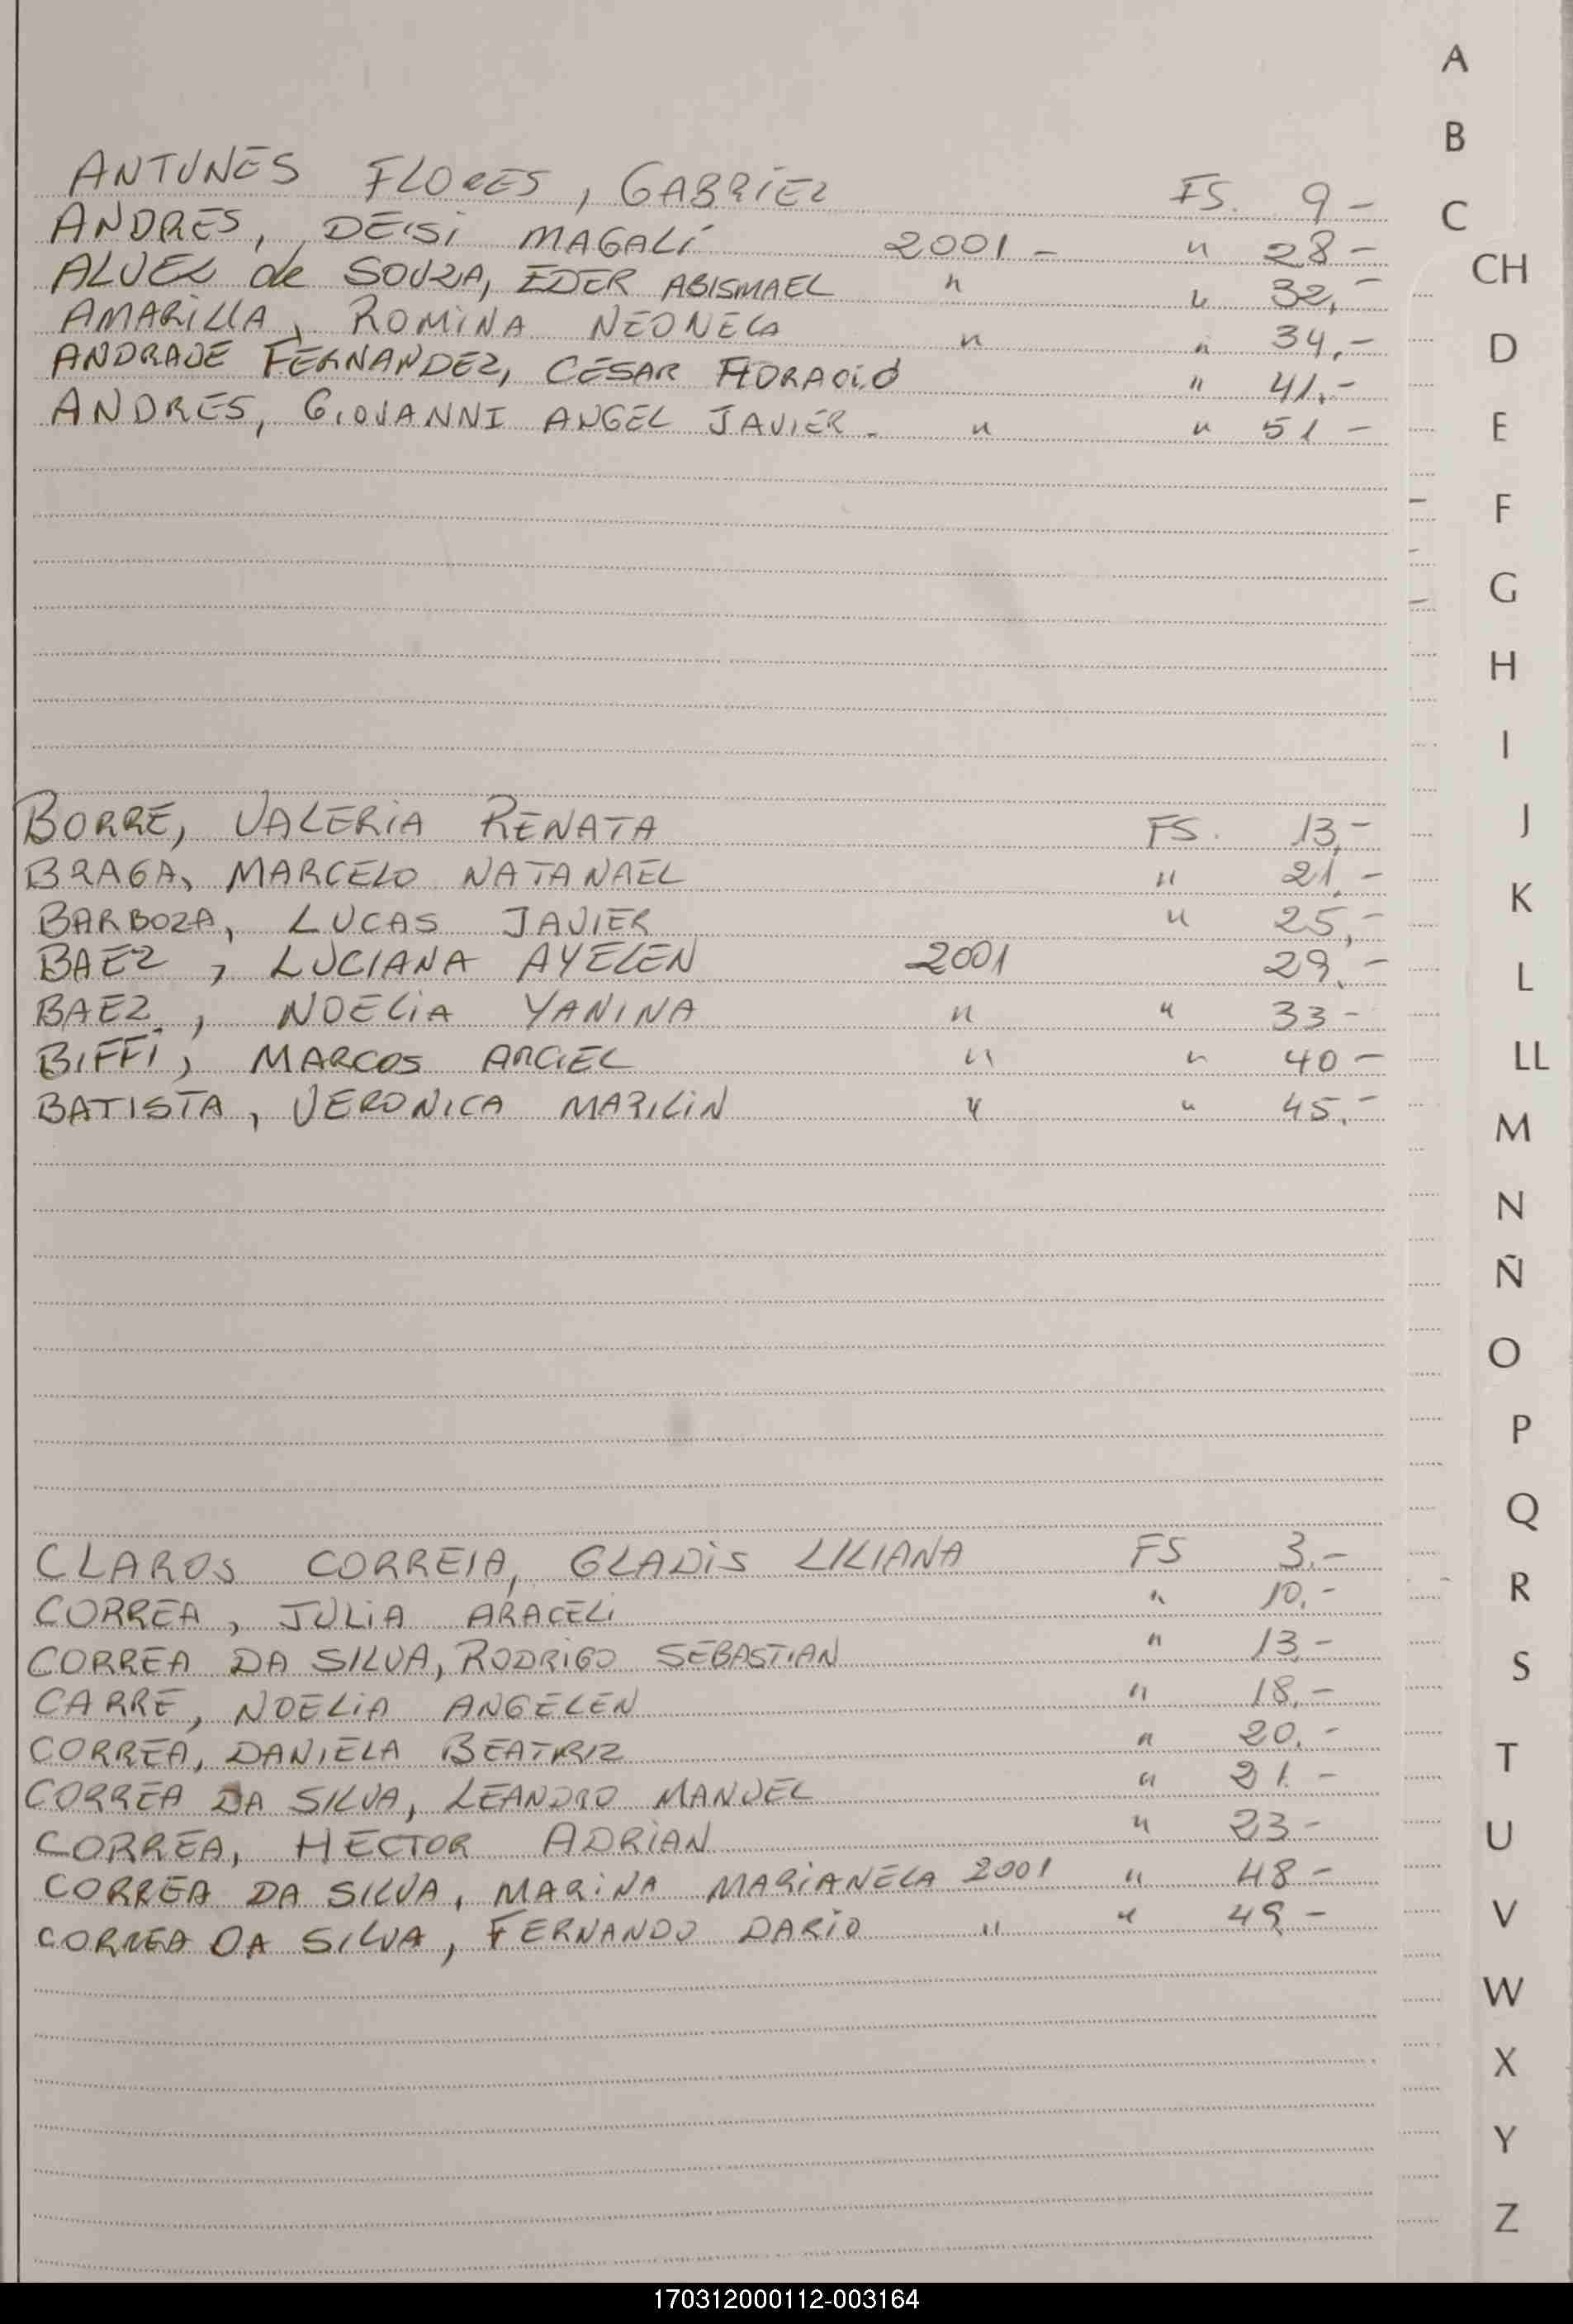 ANTUNES FLORES, GABRIEL FS. 9 -
ANDRES, DEISI MAGALI 2001 - " 28 -
ALVES de SOUZA, EDER ABISMAEL " " 32,-
AMARILLA, ROMINA NEONELA " " 34,-
ANDRADE FERNANDEZ, CÉSAR HORACIO " 41,-
ANDRES, GIOVANNI ANGEL JAVIER - " " 51 -
BORRE, VALERIA RENATA FS. 13,-
BRAGA, MARCELO NATANAEL " 21,-
BARBOZA, LUCAS JAVIER " 25,-
BAEZ, LUCIANA AYELEN 2001 29,-
BAEZ, NOELIA YANINA " " 33 -
BIFFI, MARCOS ARGIEL " " 40 -
BATISTA, VERONICA MARILIN " " 45,-
CLAROS CORREIA, GLADIS LILIANA FS 3,-
CORREA, JULIA ARACELI " 10,-
CORREA DA SILVA, RODRIGO SEBASTIAN " 13,-
CARRE, NOELIA ANGELEN " 18,-
CORREA, DANIELA BEATRIZ " 20,-
CORREA DA SILVA, LEANDRO MANUEL " 21. -
CORREA, HECTOR ADRIAN " 23 -
CORREA DA SILVA, MARINA MARIANELA 2001 " 48 -
CORREA DA SILVA, FERNANDO DARIO " " 49 -
A
B
C
CH
D
E
F
G
H
I
J
K
L
LL
M
N
Ñ
O
P
Q
R
S
T
U
V
W
X
Y
Z
170312000112-003164